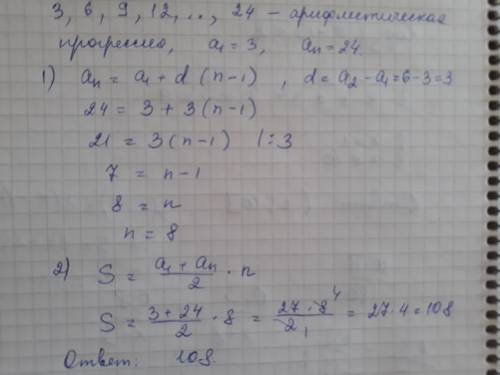 3, 6, 9, 12, ..., 24 – арифметическая
прогрессия, a₁ = 3, aₙ = 24.
1) aₙ = a₁ + d (n-1) , d = a₂ - a₁ = 6 - 3 = 3
24 = 3 + 3 (n-1)
21 = 3 (n-1) | : 3
7 = n - 1
8 = n
n = 8
2) S = (a₁ + aₙ)/2 · n
S = (3 + 24)/2 · 8 = (27 · 8⁴)/2₁ = 27 · 4 = 108
Ответ: 108.